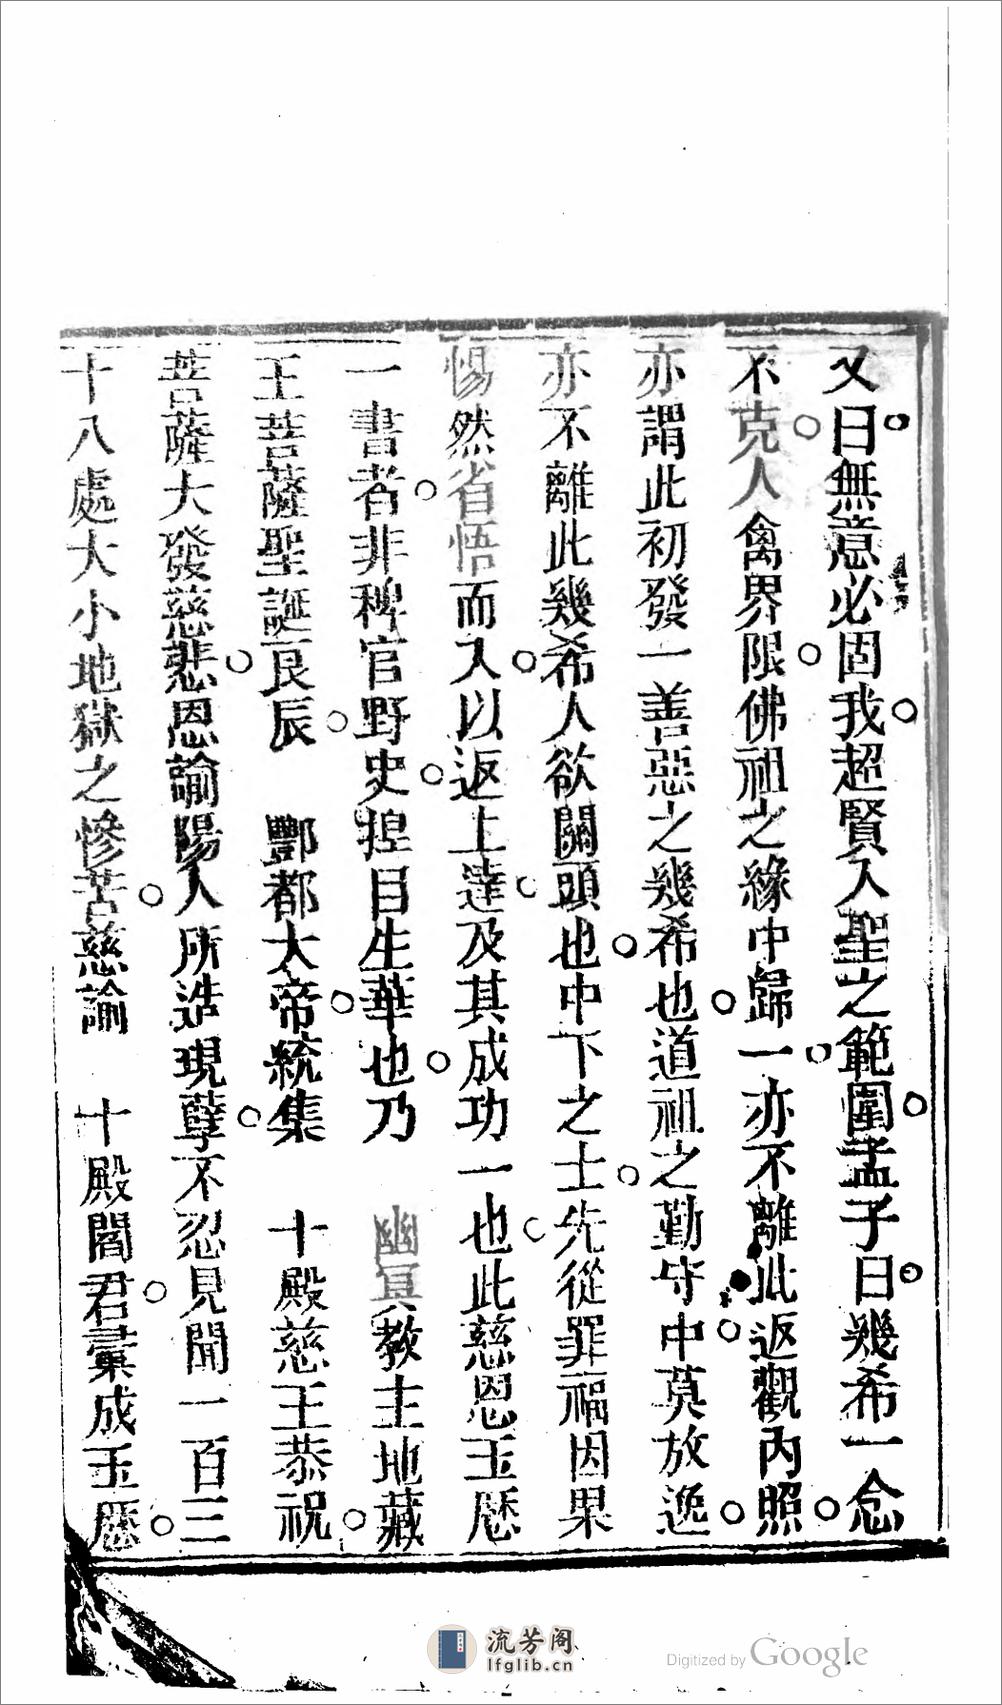 又曰無意必固我超賢入聖之範圍孟子曰幾希一念
不克人禽界限佛祖之緣中歸一亦不離此返觀內照
亦謂此初發一善惡之幾希也道祖之勤守中莫放逸
亦不離此幾希人欲關頭也中下之士先從罪福因果
惕然省悟而入以返上達及其成功一也此慈恩玉歷
一書者非稗官野史揑目生華也乃 幽冥教主地藏
王菩薩聖誕良辰 酆都大帝統集 十殿慈王恭祝
菩薩大發慈悲恩諭陽人所造現孽不忍見聞一百三
十八處大小地獄之慘苦慈諭 十殿閻君彚成玉歷
流芳阁
lfglib.cn
Digitized by Google